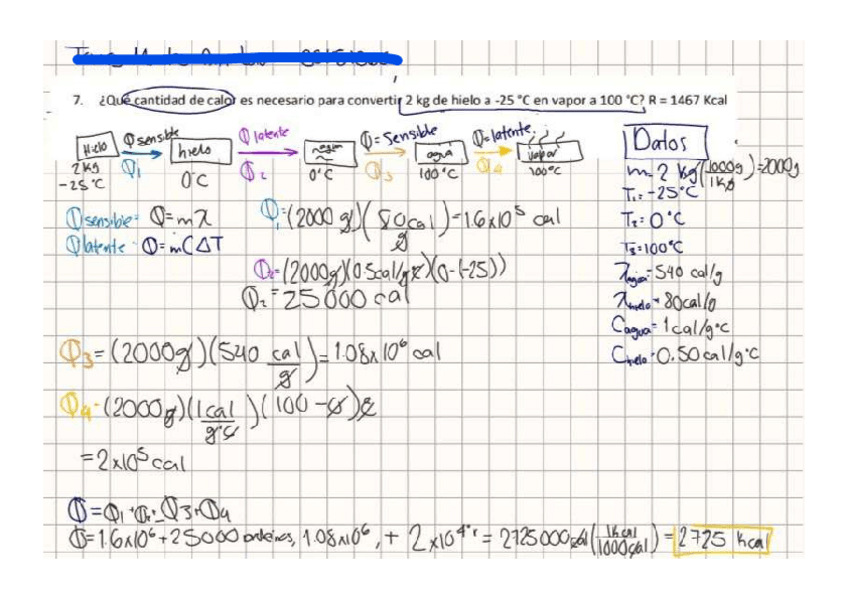 7. ¿Qué cantidad de calor es necesario para convertir 2 kg de hielo a -25 °C en vapor a 100 °C? R = 1467 Kcal
Hielo Qsensible hielo Q latente Q=Sensible agua Q=latente vapor
2kg Q1 0°C Q2 0°C Q3 100°C Q4 100°C
-25°C
Datos
m=2 kg(1000g/1kg)=2000g
T1=-25°C
T2=0°C
T3=100°C
λagua=540 cal/g
λhielo=80cal/g
Cagua=1cal/g°c
Chielo=0.50cal/g°c
Qsensible= Q=mλ
Qlatente= Q=mCΔT
Q1=(2000 g)(80cal/g)=1.6x10⁵ cal
Q2=(2000g)(0.5cal/g°c)(0-(-25))
Q2=25000 cal
Q3=(2000g)(540 cal/g)=1.08x10⁶ cal
Q4=(2000g)(1cal/g°c)(100-0)c
=2x10⁵cal
Q=Q1+Q2+Q3+Q4
Q=1.6x10⁶+25000 1.08x10⁶, + 2x10⁴ = 2725000cal(1kcal/1000cal) = 2725 kcal